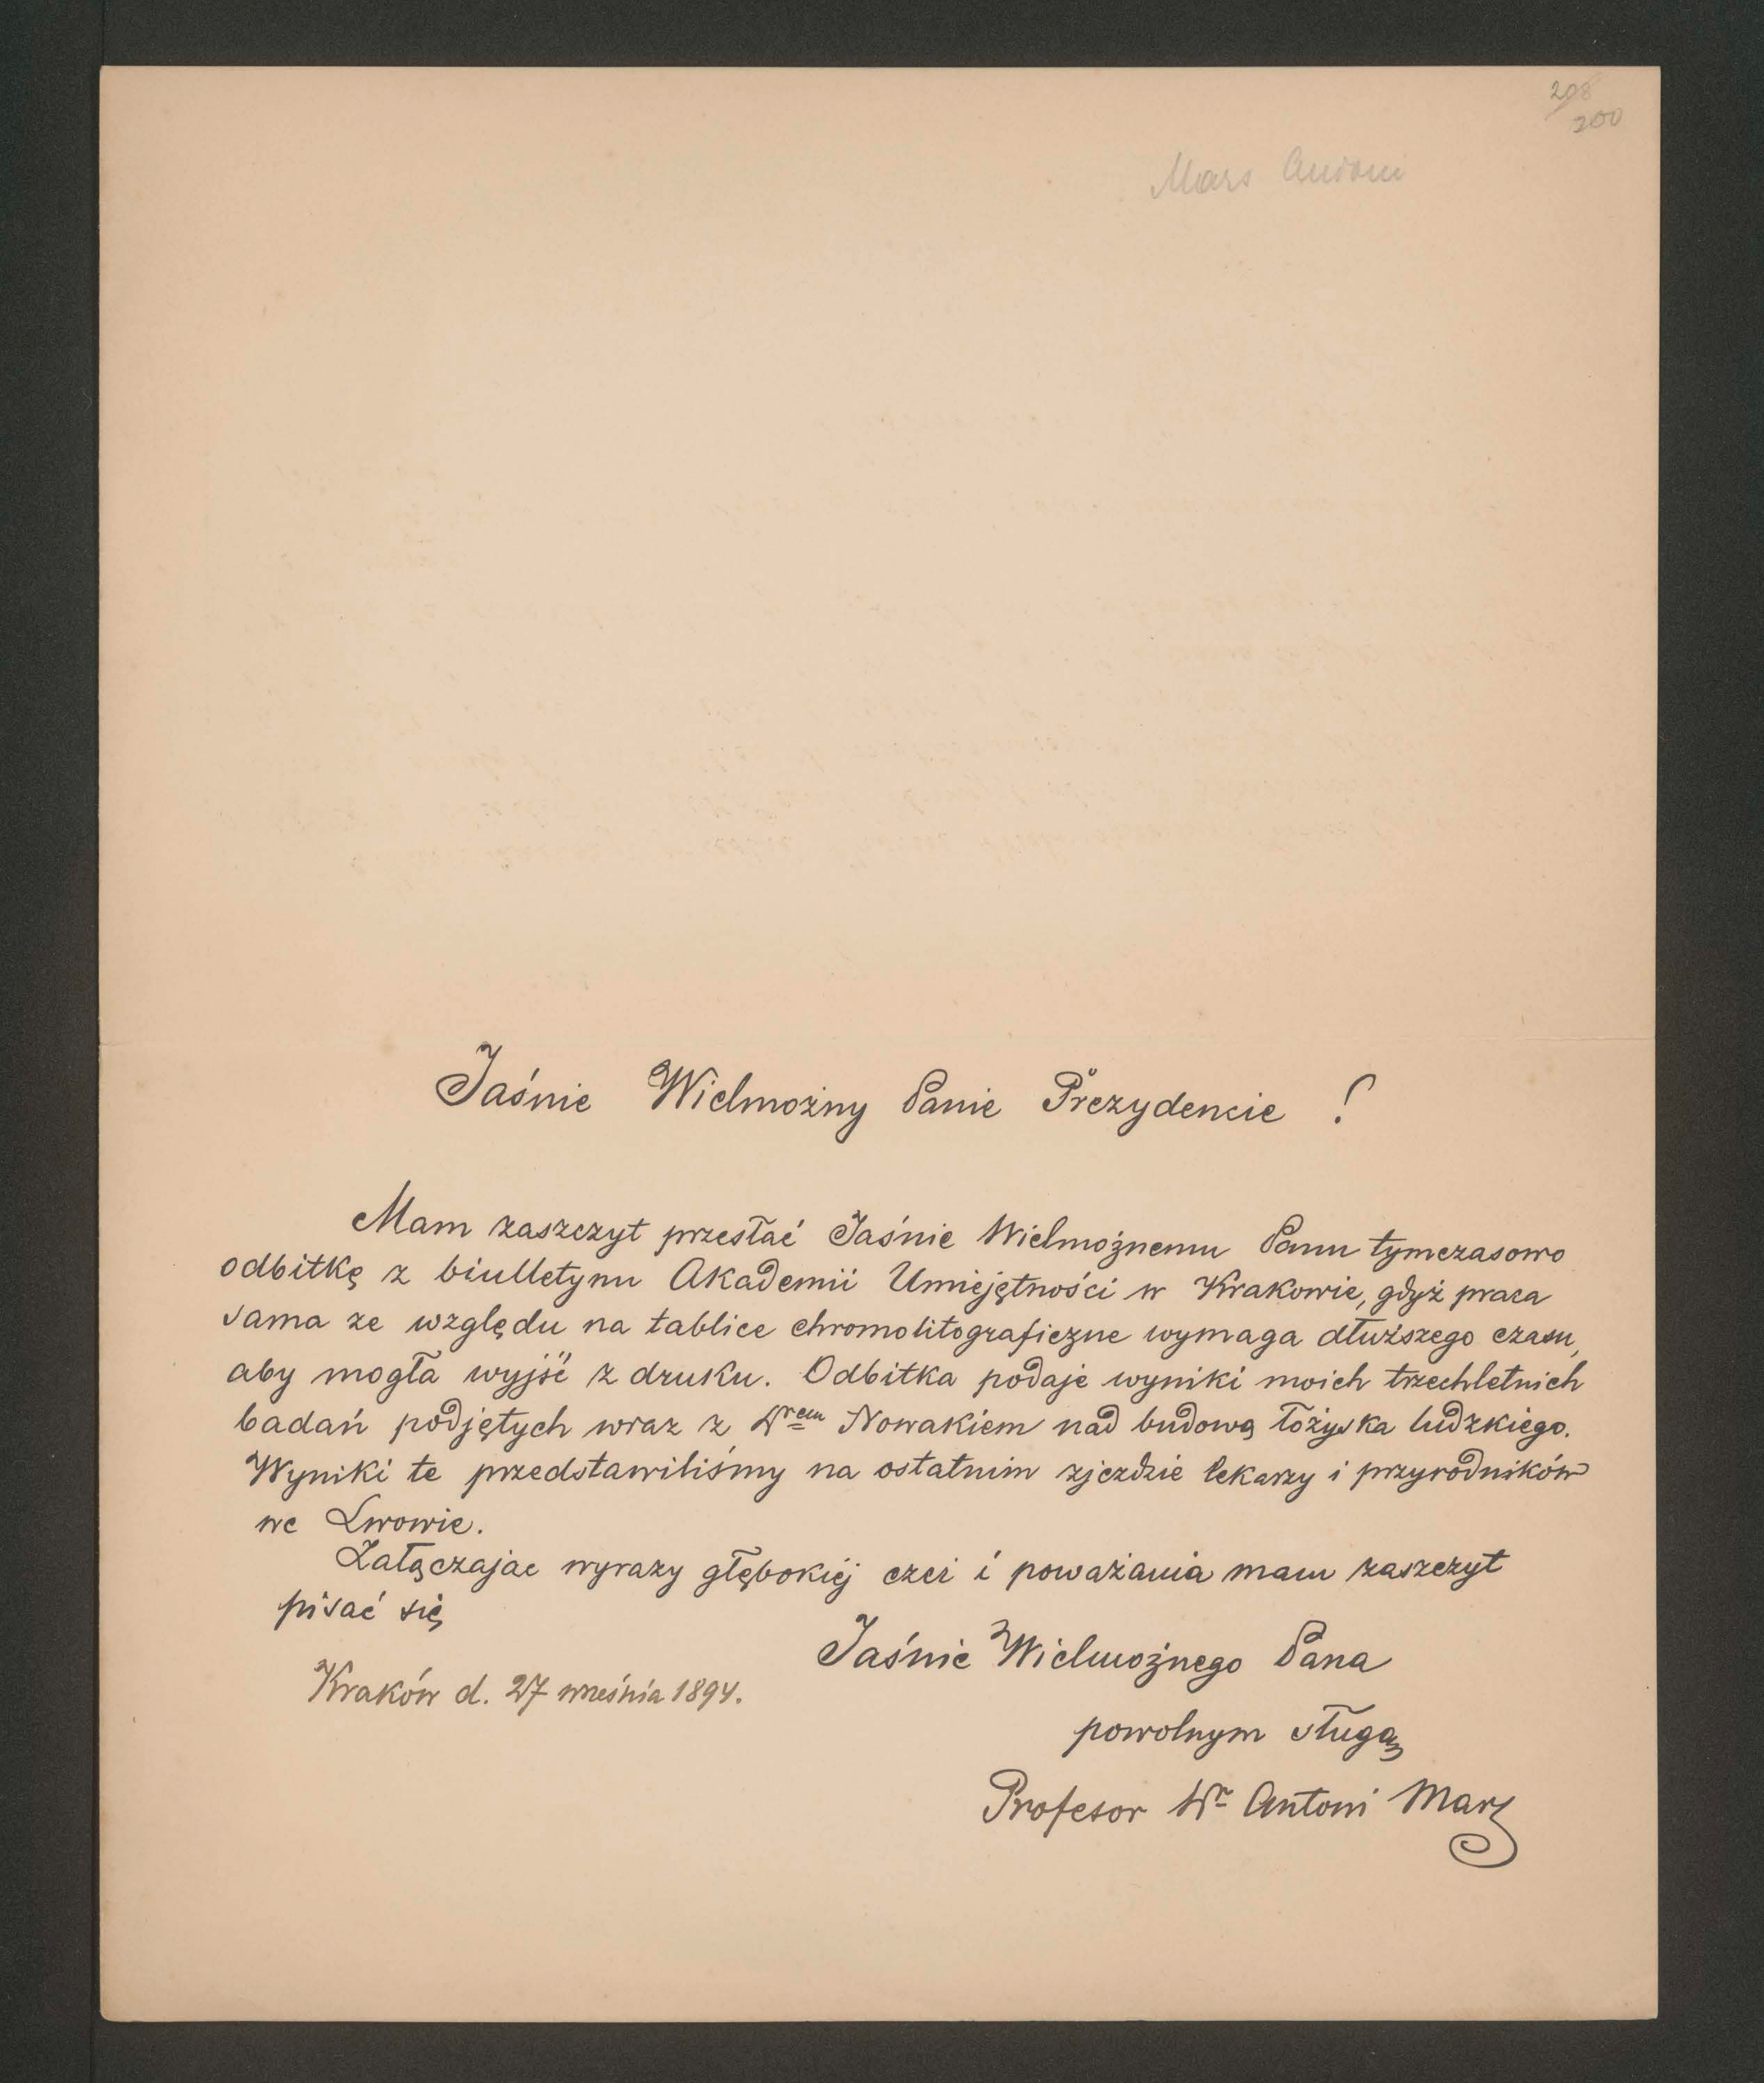 298
200
Mars Antoni
Jaśnie Wielmożny Panie Prezydencie !
Mam zaszczyt przesłać Jaśnie Wielmożnemu Panu tymczasowo
odbitkę z biulletynu Akademii Umiejętności w Krakowie, gdyż praca
sama ze względu na tablice chromolitograficzne wymaga dłuższego czasu,
aby mogła wyjść z druku. Odbitka podaje wyniki moich trzechletnich
badań podjętych wraz z Drem Nowakiem nad budową łożyska ludzkiego.
Wyniki te przedstawiliśmy na ostatnim zjeździe lekarzy i przyrodników
we Lwowie.
Załączając wyrazy głębokiéj czci i poważania mam zaszczyt
pisać się
Jaśnie Wielmożnego Pana
Kraków d. 27 września 1894.
powolnym sługą
Profesor Dr Antoni Mars